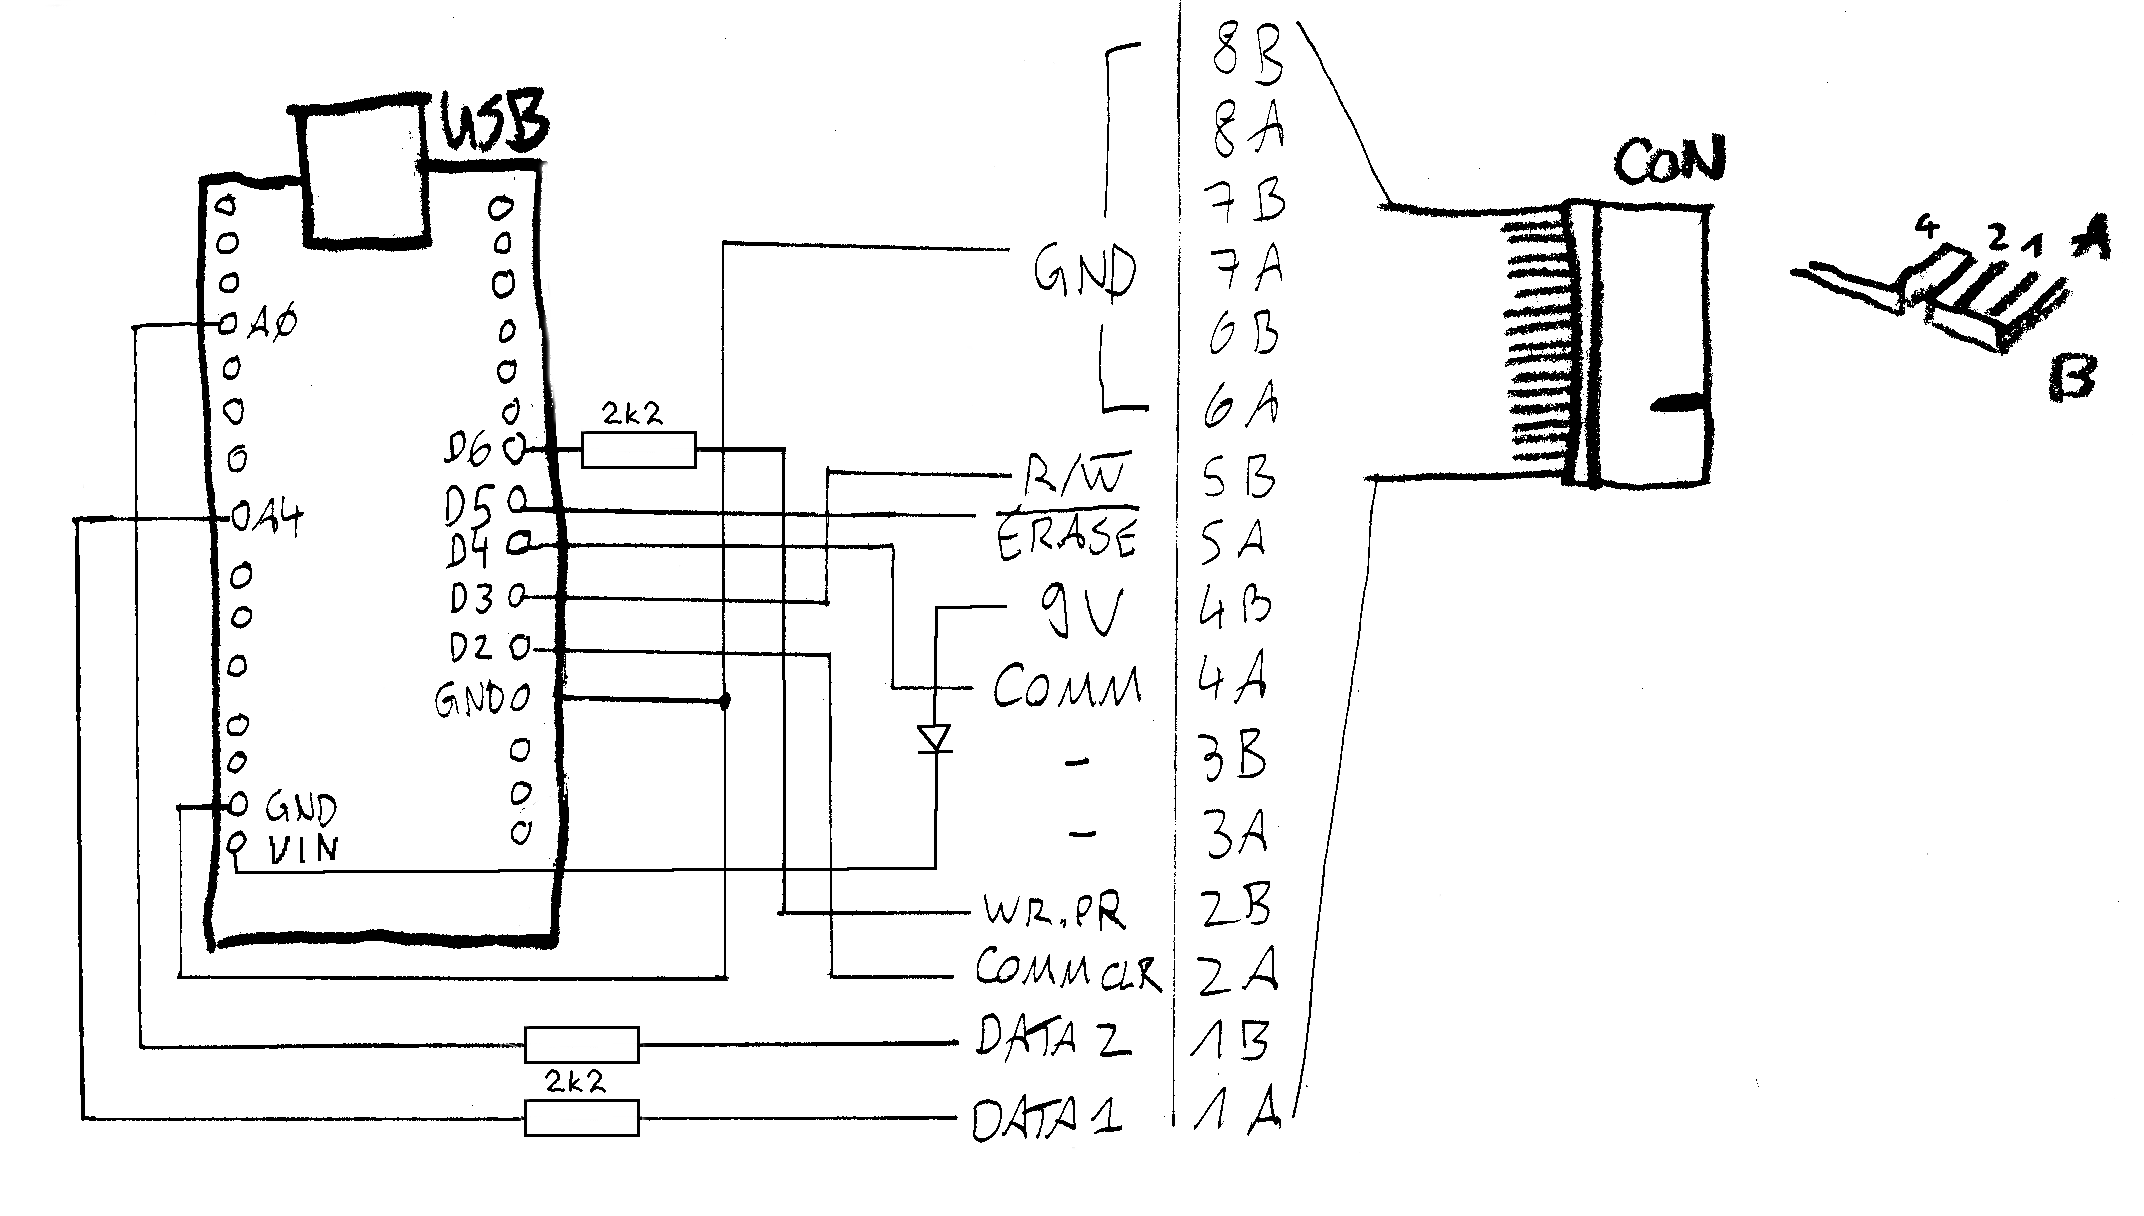 USB
A0
A4
GND
VIN
D6
D5
D4
D3
D2
GND
2k2
2k2
GND
R/W̅
E̅R̅A̅S̅E̅
9V
COMM
-
-
WR.PR
COMMCLR
DATA 2
DATA 1
8B
8A
7B
7A
6B
6A
5B
5A
4B
4A
3B
3A
2B
2A
1B
1A
CON
4 2 1 A
B